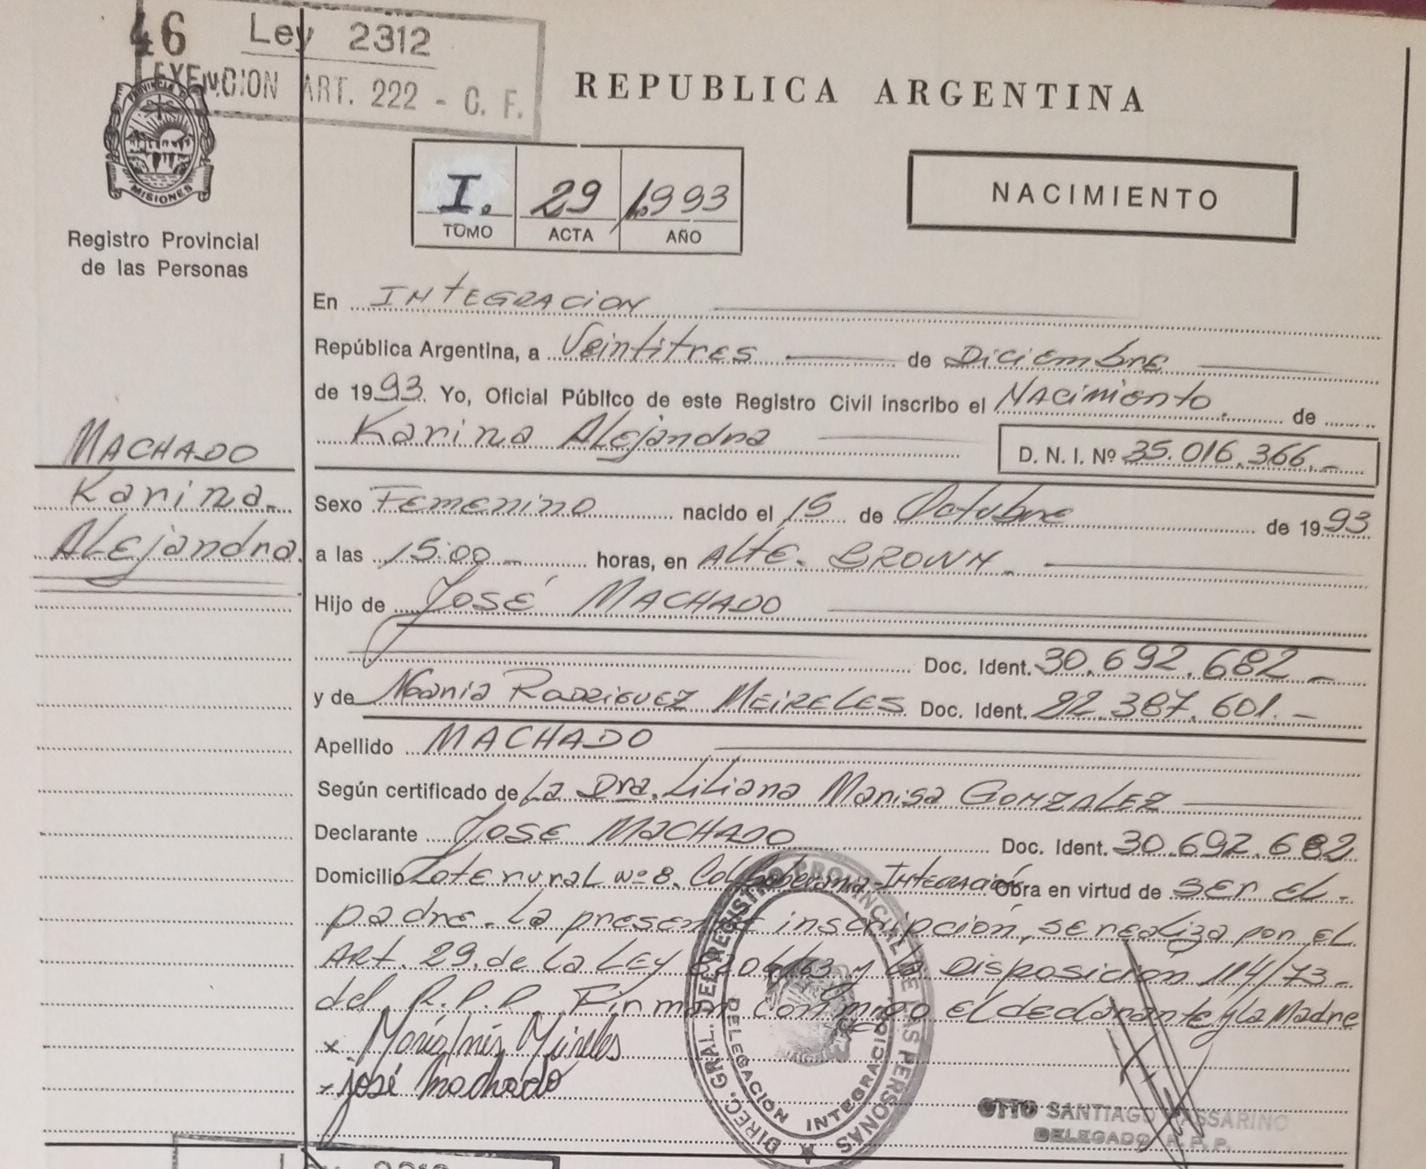 46 Ley 2312
EXENCION ART. 222 - C. F.
REPUBLICA ARGENTINA
PROVINCIA DE
MISIONES
Registro Provincial
de las Personas
I. 29 1.993
TOMO ACTA AÑO
NACIMIENTO
En INTEGRACION
República Argentina, a Veintitres de Diciembre
de 1993. Yo, Oficial Público de este Registro Civil inscribo el Nacimiento. de
Karina Alejandra D. N. I. Nº 35.016.366.-
MACHADO
Karina.
Alejandra.
Sexo Femenino nacido el 15 de Octubre de 1993
a las 15:00 horas, en ALTE. BROWN.
Hijo de José MACHADO
Doc. Ident. 30.692.682-
y de RODRIGUEZ MEIRELES Doc. Ident. 92.387.601.-
Apellido MACHADO
Según certificado de La Dra. Liliana Marisa GONZALEZ
Declarante JOSE MACHADO Doc. Ident. 30.692.682
Domicilio Lote rural Nº 8. Col. Integración Obra en virtud de SER EL
padre. La presente inscripción, se realiza por EL
ART. 29. de la LEY 8204/63 y la Disposición 114/73
del R.P.P. Firman conmigo el declarante y la Madre
x María Inés Mireles
x josé machado
DIREC. GRAL. DEL REGISTRO PROVINCIAL DE LAS PERSONAS
DELEGACION INTEGRACION
OTTO SANTIAGO
DELEGADO R.P.P.